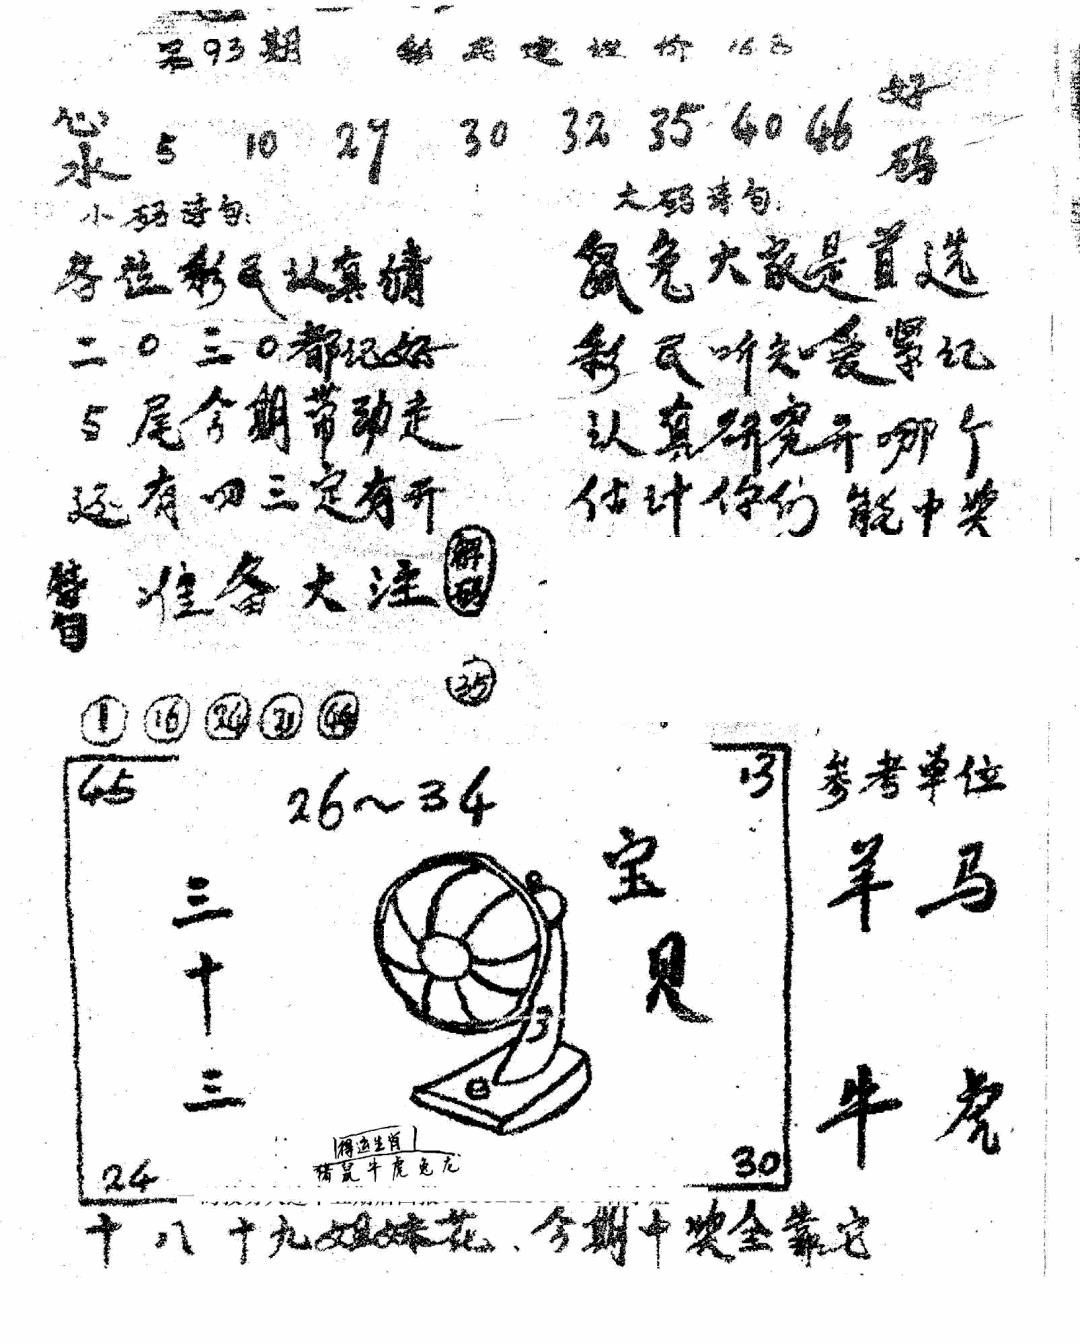 第93期 彩民建设价
心水 5 10 29 30 32 35 40 46 好码
小码诗句:
各位彩民认真猜
二0三0都记好
5尾今期带动走
还有四三定有开
大码诗句:
鼠兔大家是首选
彩民听知要紧记
认真研究开哪个
估计你们能中奖
准备大注 解码
35
1 16 24 21 44
45 26~34 13
三十三
宝贝
3
得运生肖
猪鼠牛虎兔龙
24 30
参考单位
羊 马
牛 虎
十八十九姐妹花、今期中奖全靠它